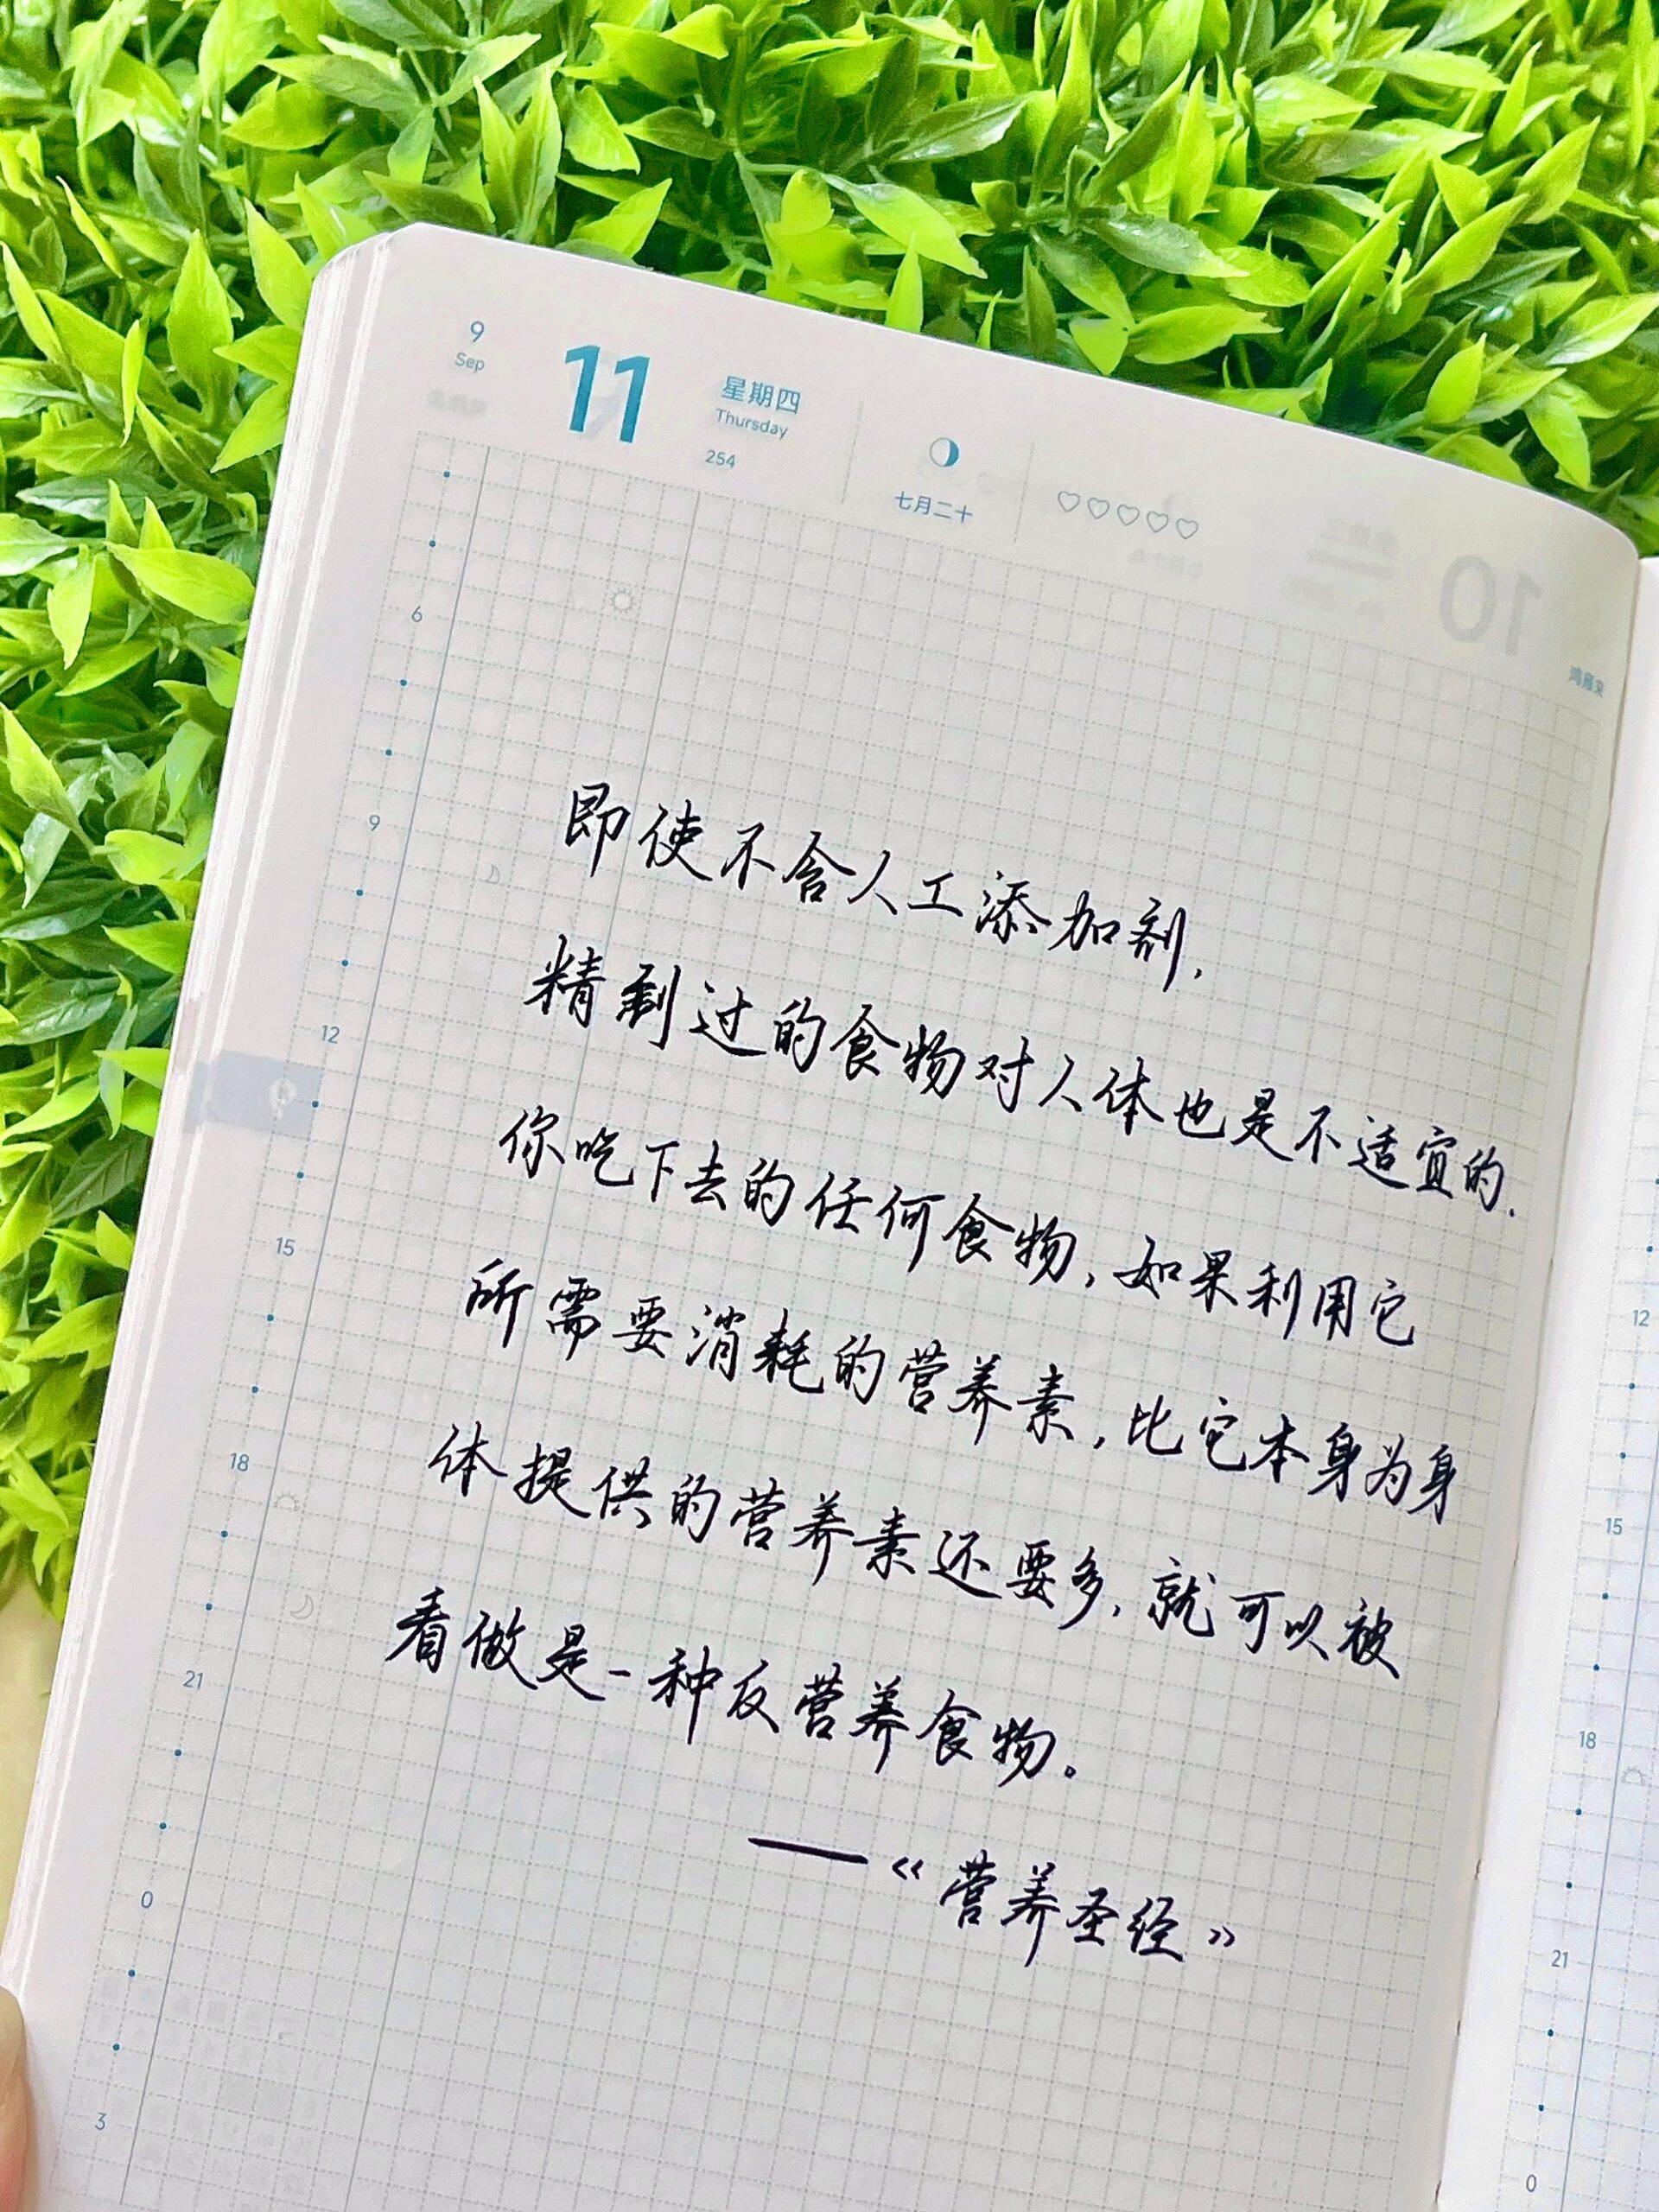 9
Sep
11
星期四
Thursday
254
七月二十
10
6
9
12
15
18
21
0
3
即使不含人工添加剂,
精制过的食物对人体也是不适宜的.
你吃下去的任何食物,如果利用它
所需要消耗的营养素,比它本身为身
体提供的营养素还要多,就可以被
看做是一种反营养食物。
——《营养圣经》
12
15
18
21
0